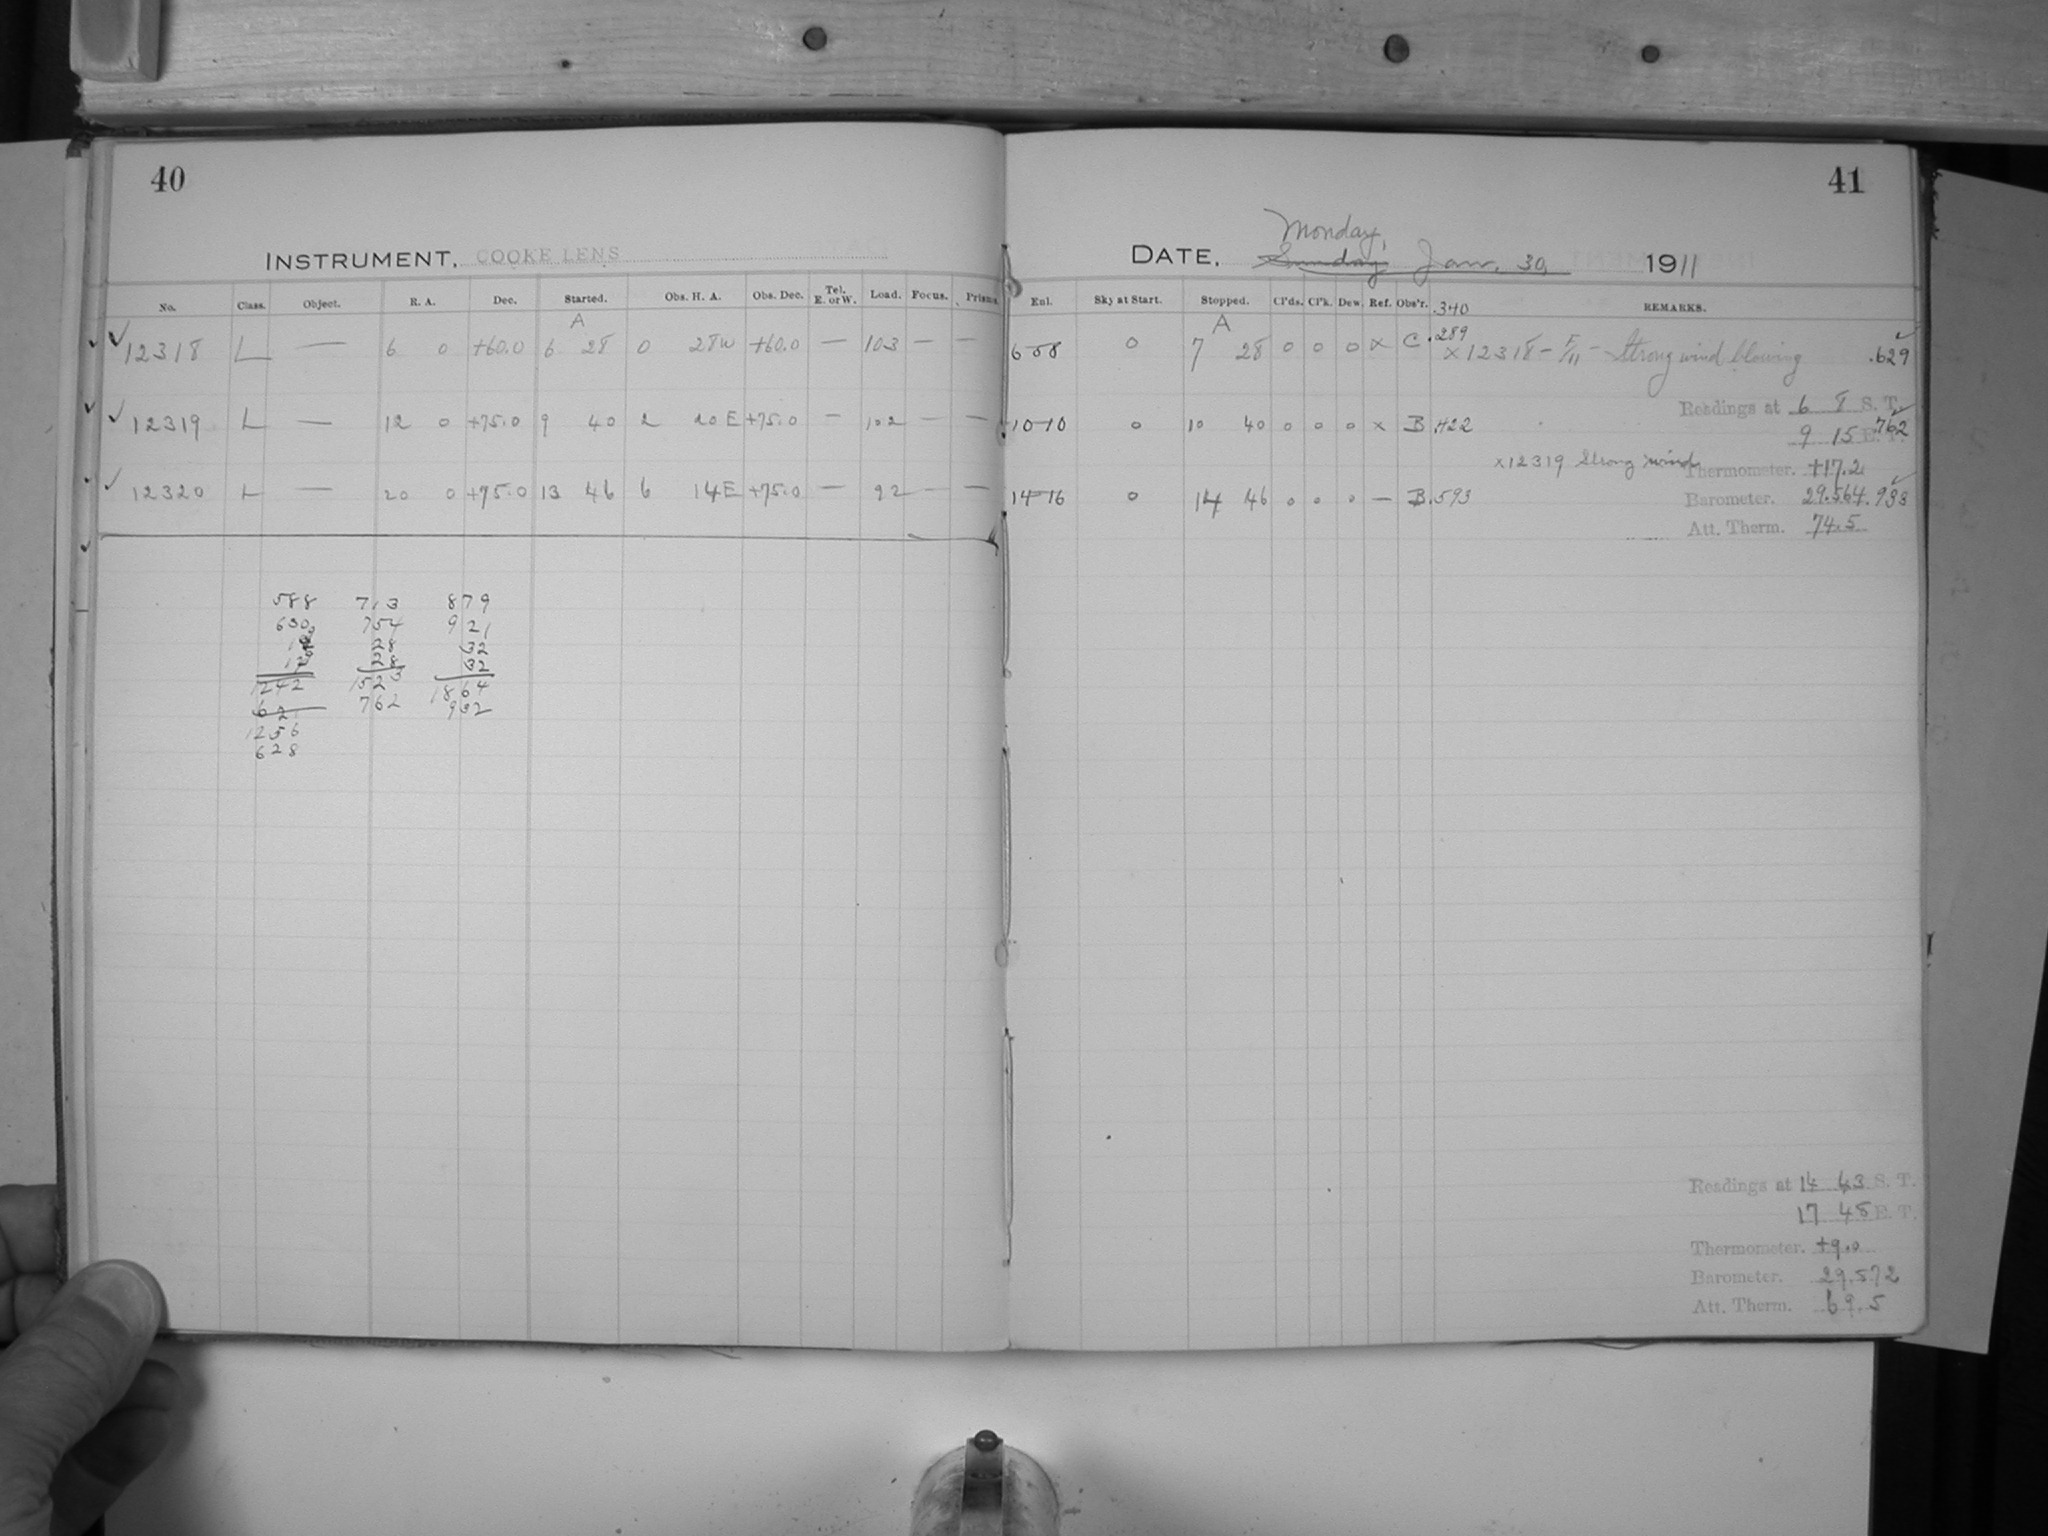 40
INSTRUMENT. COOKE LENS
No. Class. Object. R. A. Dec. Started. Obs. H. A. Obs. Dec. Tel. E. or W. Load. Focus. Prisms.
A
12318 L — 6 0 +60.0 6 28 0 28W +60.0 — 103 — —
12319 L — 12 0 +75.0 9 40 2 20E +75.0 — 102 — —
12320 L — 20 0 +75.0 13 46 6 14E +75.0 — 92 — —
588 713 879
630 754 921
28 32
28 32
1242 1523 1864
62 762 932
1256
628
41
Monday,
DATE. Sunday Jan. 30, 1911
Enl. Sky at Start. Stopped. Cl'ds. Cl'k. Dew. Ref. Obs'r. .340 REMARKS.
A
6 58 0 7 28 0 0 0 x C .289 x12318 - F/11 - Strong wind blowing .629
Readings at 6 8 S. T.
10 10 0 10 40 0 0 0 x B .422 .762
9 15 E. T.
x12319 Strong wind
Thermometer. +17.2
14 16 0 14 46 0 0 0 — B .593 Barometer. 29.564 .933
Att. Therm. 74.5
Readings at 14 43 S. T.
17 48 E. T.
Thermometer. +9.0
Barometer. 29.572
Att. Therm. 69.5